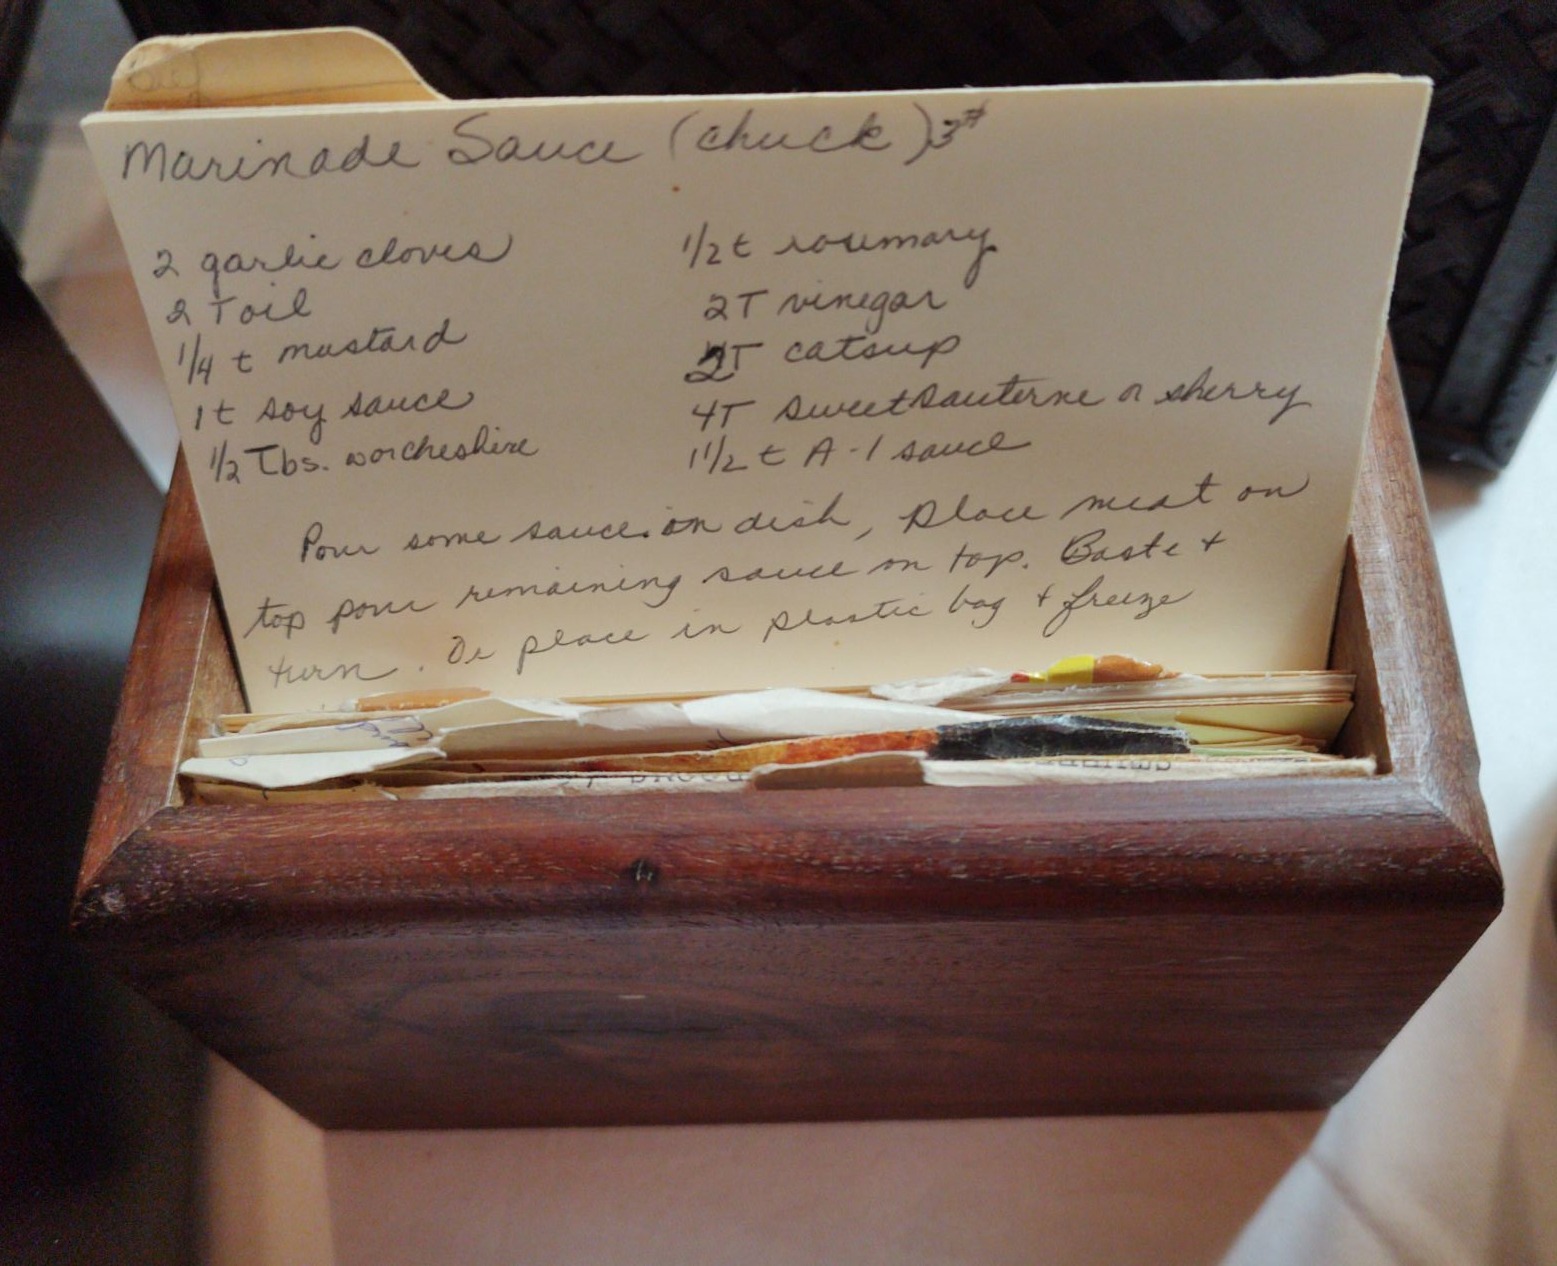 Beef
Marinade Sauce (chuck) 3#
2 garlic cloves
2 T oil
1/4 t mustard
1 t soy sauce
1/2 Tbs. worcheshire
1/2 t rosemary
2T vinegar
2T catsup
4T sweet sauterne or sherry
1 1/2 t A-1 sauce
Pour some sauce on dish, place meat on
top pour remaining sauce on top. Baste +
turn. Or place in plastic bag + freeze